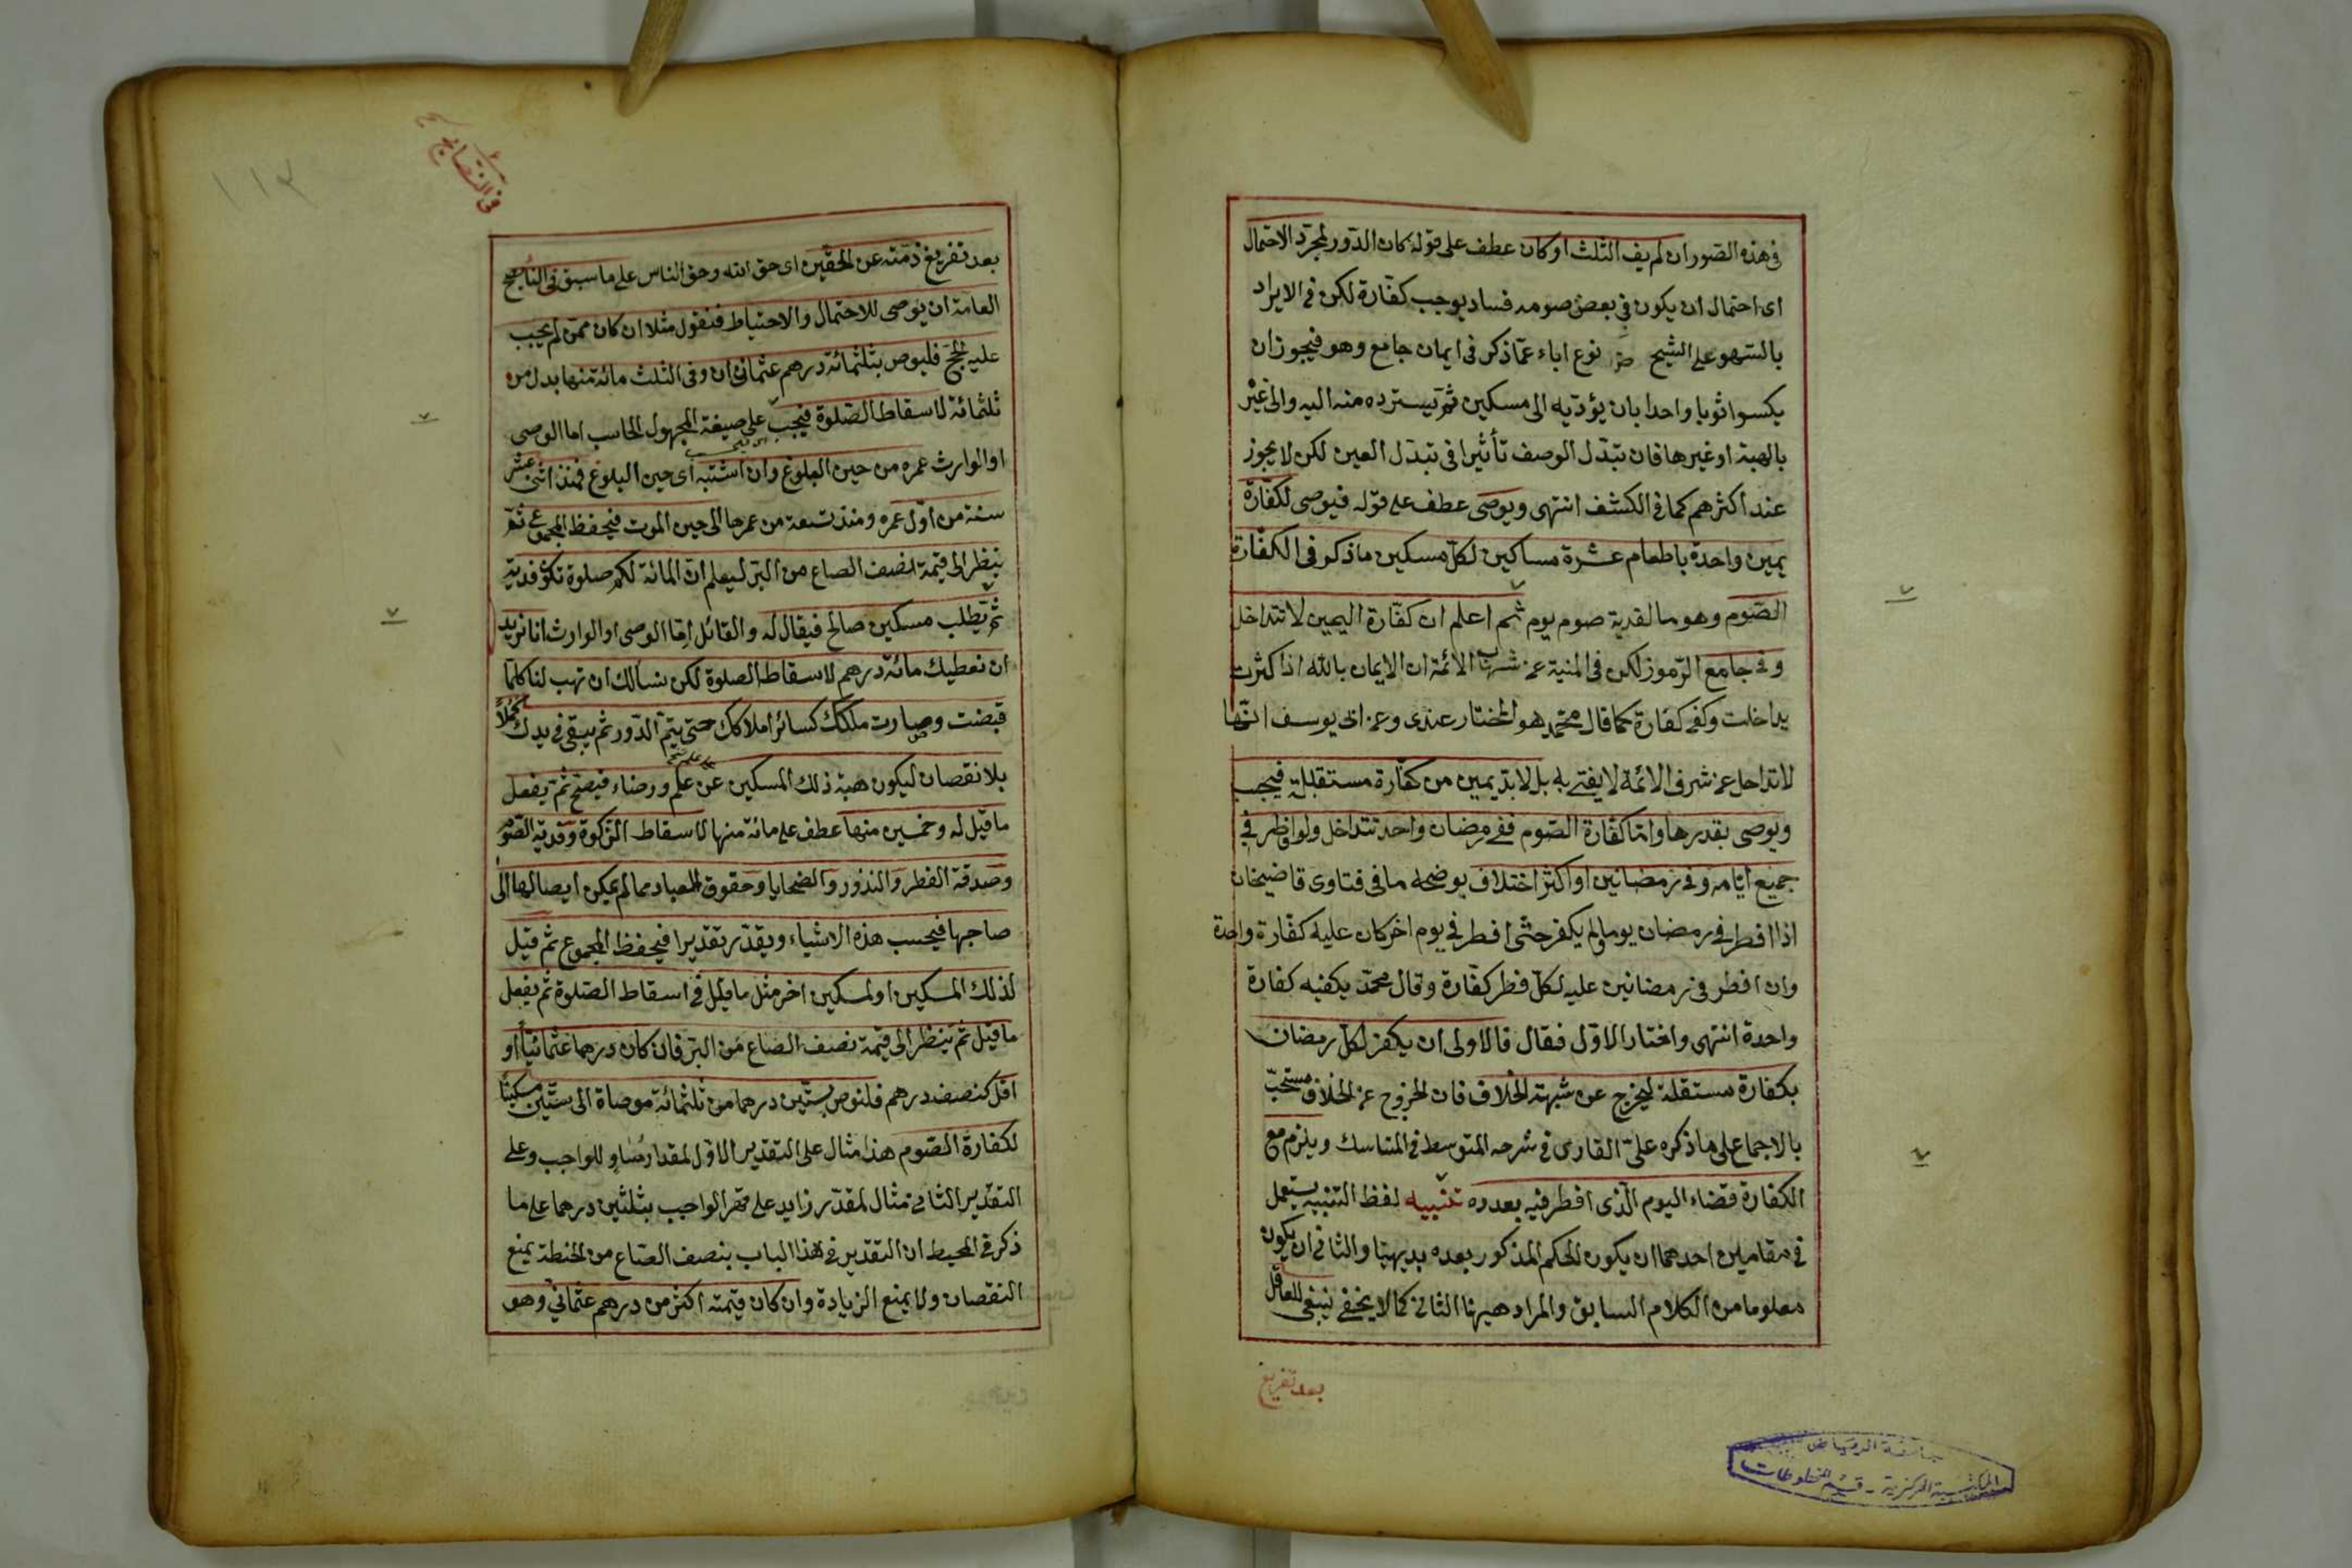 في هذه الصور ان لم يف الثلث او كان عطف على قوله كان الدور لمجرد الاحتمال
اى احتمال ان يكون في بعض صومه فساد يوجب كفارة لكن في الايراد
بالسهو على الشيخ نوع اباء عما ذكر فى ايمان جامع وهو فيجوز ان
يكسوا ثوبا واحدا بان يؤديه الى مسكين ثم يسترده منه اليه والى غير
بالهبة او غيرها فان تبدل الوصف تأثيرا فى تبدل العين لكن لا يجوز
عند اكثرهم كما فى الكشف انتهى ويوصى عطف على قوله فيوصى لكفارة
يمين واحدة باطعام عشرة مساكين لكل مسكين ما ذكر فى الكفارة
الصوم وهو ما لفدية صوم يوم ثم اعلم ان كفارة اليمين لا تتداخل
وفى جامع الرموز لكن فى المنية عن شهاب الائمة ان الايمان بالله اذا كثرت
يداخلت وكفى كفارة كما قال محمد هو المختار عندى وعن ابى يوسف انها
لا تداخل عن شرف الائمة لا يفتى به بل لا بد يمين من كفارة مستقبلة فيجب
ويوصى بقدرها واما كفارة الصوم ففى رمضان واحد تتداخل ولو افطر فى
جميع ايامه وفى رمضانين او اكثر اختلاف يوضحه ما فى فتاوى قاضيخان
اذا افطر فى رمضان يوما ولم يكفر حتى افطر فى يوم اخر كان عليه كفارة واحدة
وان افطر فى رمضانين عليه لكل فطر كفارة وقال محمد يكفيه كفارة
واحدة انتهى واختار الاول فقال فالاولى ان يكفر لكل رمضان
بكفارة مستقلة ليخرج عن شبهة الخلاف فان الخروج عن الخلاف مستحب
بالاجماع على ما ذكره على القارى فى شرحه المتوسط فى المناسك ويلزم مع
الكفارة قضاء اليوم الذى افطر فيه بعدده تنبيه لفظ التنبيه يستعمل
فى مقامين احدهما ان يكون الحكم المذكور بعده بديهيا والثانى ان يكون
معلوما من الكلام السابق والمراد هيهنا الثانى كما لا يخفى ينبغى للعاقل
بعد تفريغ
جامعة الرياض
المكتبة المركزية - قسم المخطوطات
١١٣
بعد تفريغ ذمته عن الحقين اى حق الله وحق الناس على ما سبق فى النايح
العامة ان يوصى للاحتمال والاحتياط فنقول مثلا ان كان ممن لم يجب
عليه الحج فليوص بثلثمائة درهم عثمانى ان وفى الثلث مائة منها بدل من
ثلثمائة لاسقاط الصلوة فيحسب على صيغة المجهول الحاسب اما الوصى
او الوارث عمره من حين البلوغ وان اشتبه اى حين البلوغ فمنذ اثنى عشر
سنة من اول عمره ومنذ تسعة من عمرها الى حين الموت فيحفظ المجموع ثم
ينظر الى قيمة نصف الصاع من البر ليعلم ان المائة لكم صلوة تكون فدية
ثم يطلب مسكين صالح فيقال له والقائل اما الوصى او الوارث انا نريد
ان نعطيك مائة درهم لاسقاط الصلوة لكن نسألك ان تهب لنا كلما
قبضت وصارت ملكك كسائر املاكك حتى يتم الدور ثم يبقى فى يدك كملا
بلا نقصان ليكون هبة ذلك المسكين عن علم ورضاء فيصح ثم يفعل
ما قيل له وخمسين منها عطف على مائة منها لاسقاط الزكوة وفدية الصوم
وصدقة الفطر والنذور والضحايا وحقوق العباد مما لم يمكن ايصالها الى
صاحبها فيحسب هذه الاشياء ويقدر تقديرا فيحفظ المجموع ثم قيل
لذلك المسكين او لمسكين اخر مثل ما قيل فى اسقاط الصلوة ثم يفعل
ما قيل ثم ينظر الى قيمة نصف الصاع من البر فان كان درهما عثمانيا او
اقل كنصف درهم فلنوص بستين درهما من ثلثمائة موصاة الى ستين مسكينا
لكفارة الصوم هذا مثال على التقدير الاول لمقدار مساو للواجب وعلى
التقدير الثانى مثال لمقدر زايد على قدر الواجب بثلثين درهما على ما
ذكر فى المحيط ان التقدير فى هذا الباب بنصف الصاع من الحنطة يمنع
النقصان ولا يمنع الزيادة وان كان قيمته اكثر من درهم عثمانى وهو